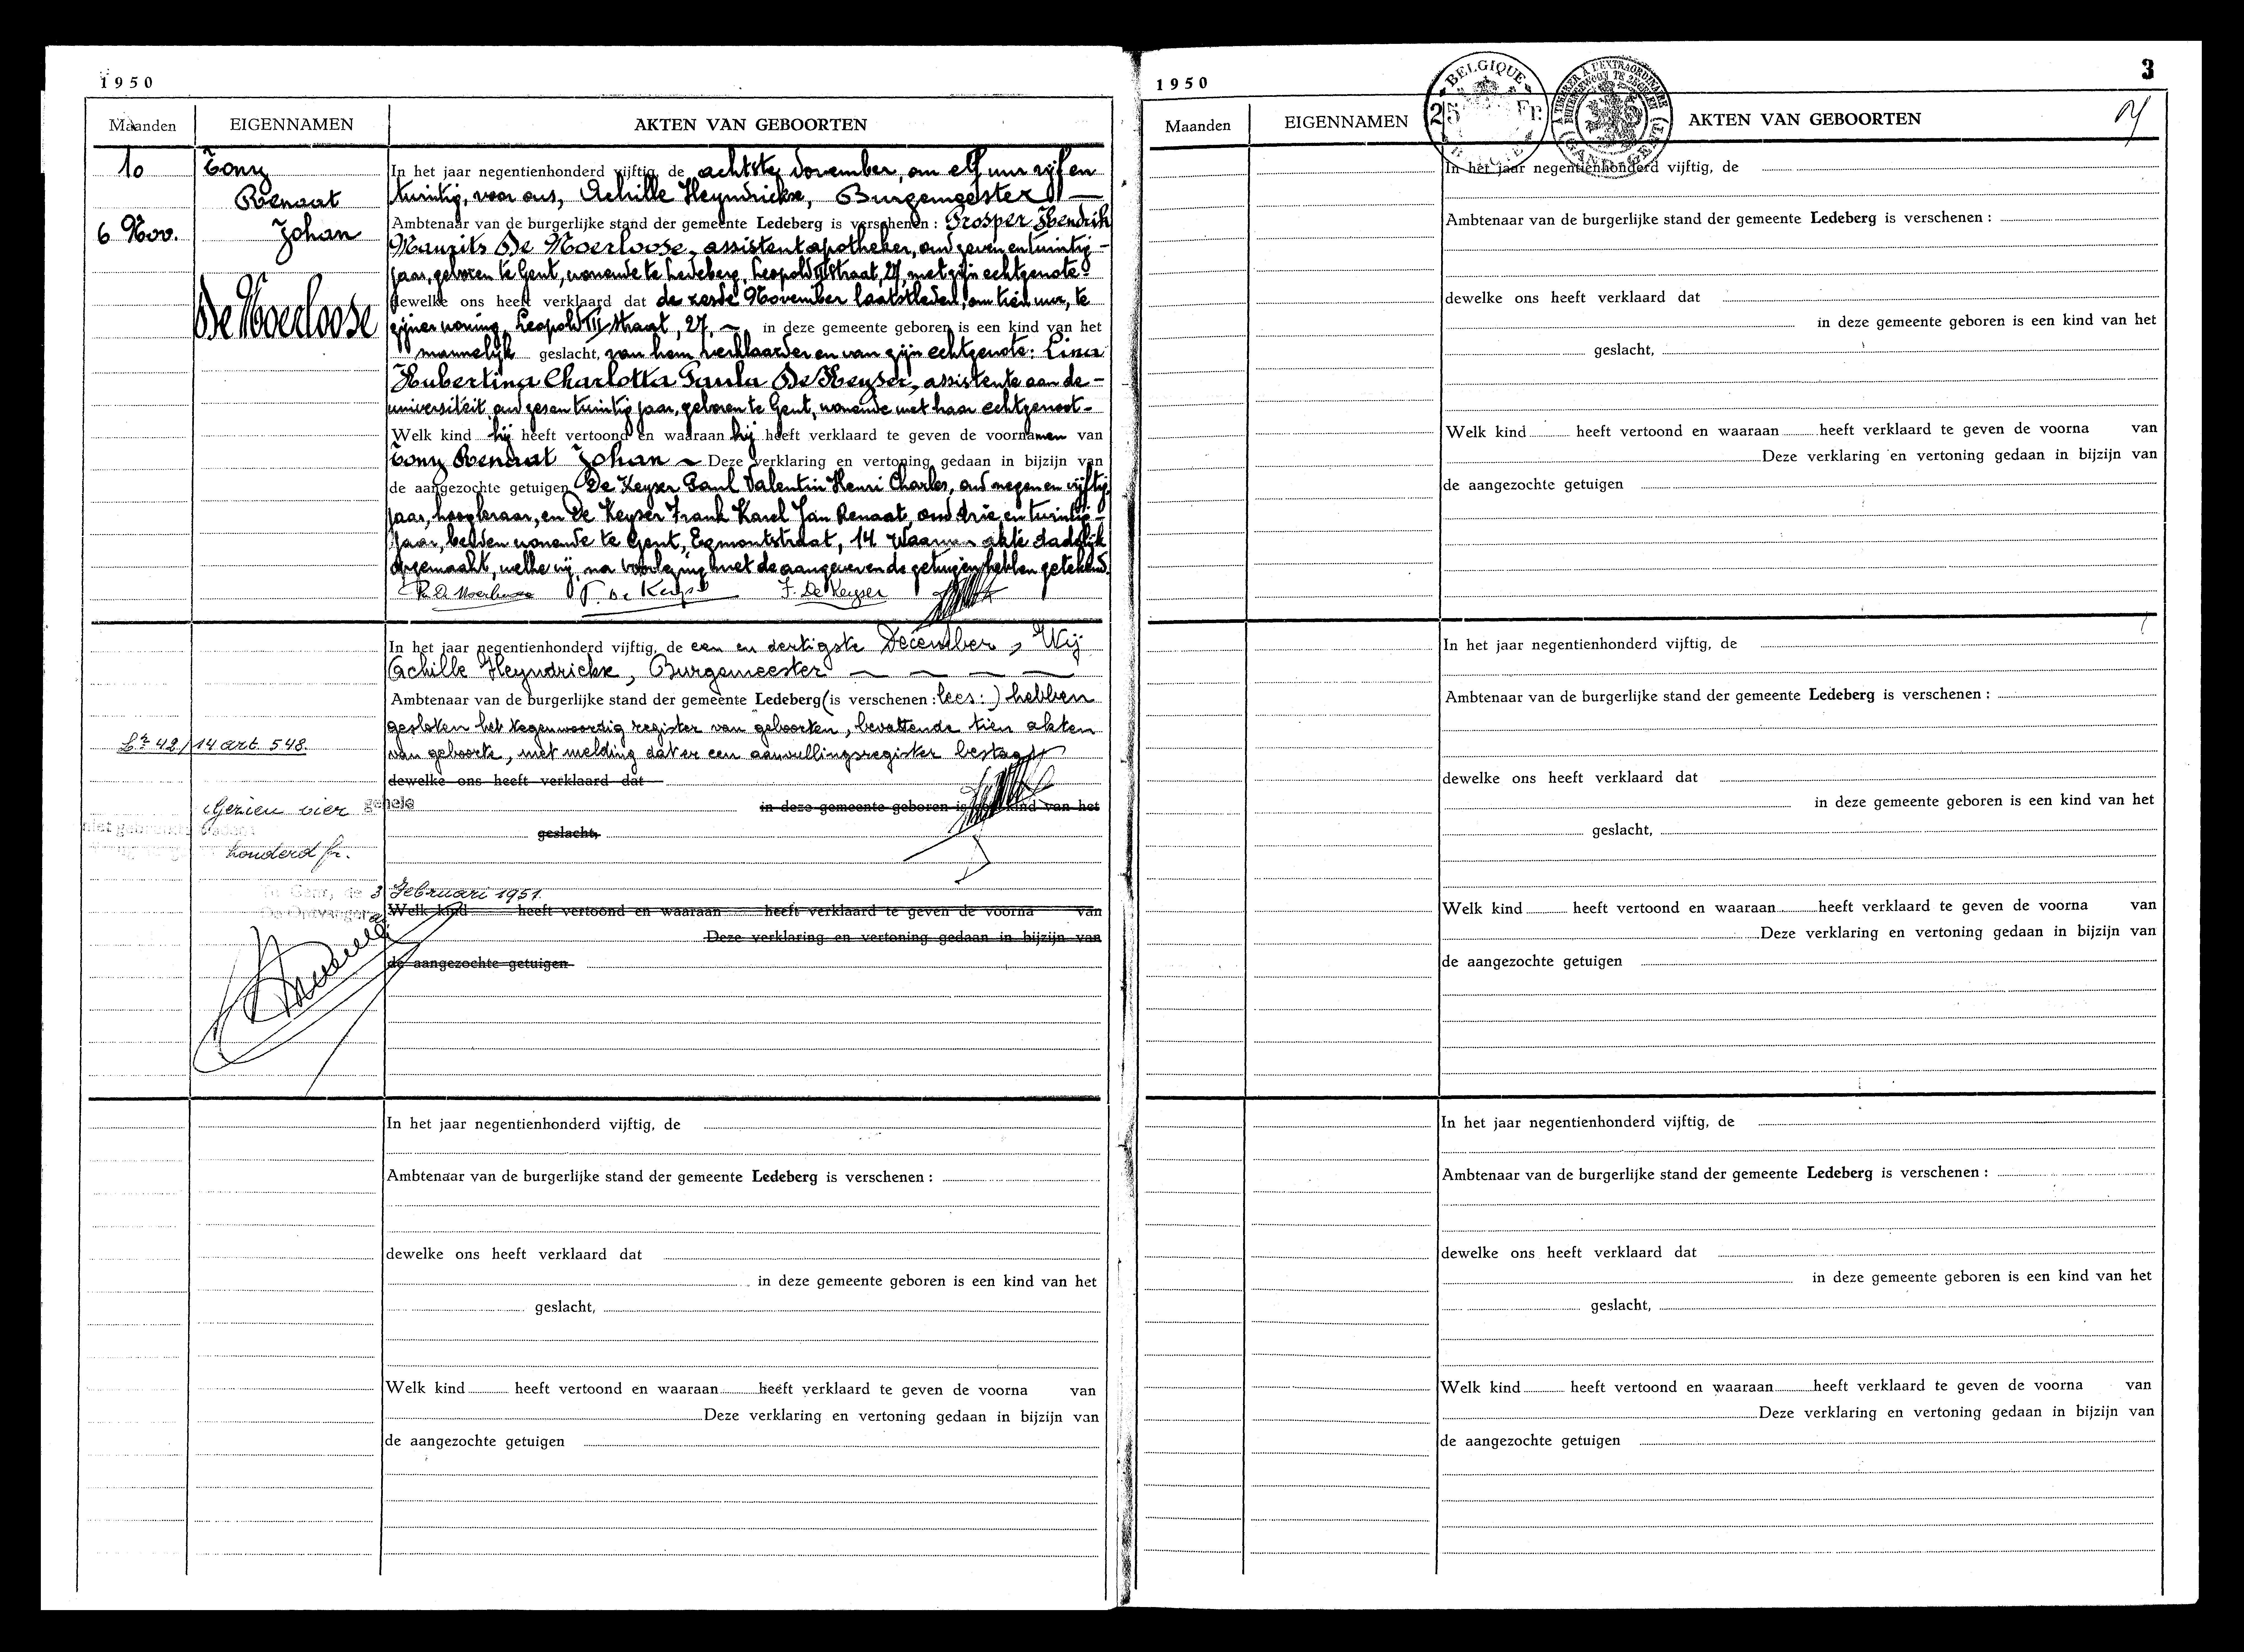 1950
Maanden EIGENNAMEN AKTEN VAN GEBOORTEN
10
6 Nov.
Tony
Renaat
Johan
De Moerloose
In het jaar negentienhonderd vijftig, de achtste November, om elf uur vijf en
twintig, voor ons, Achille Heyndrickx, Burgemeester
Ambtenaar van de burgerlijke stand der gemeente Ledeberg is verschenen : Prosper Hendrik
Maurits De Moerloose, assistent apotheker, oud zeven en twintig
jaar, geboren te Gent, wonende te Ledeberg, Leopold II straat, 27, met zijn echtgenote
dewelke ons heeft verklaard dat de zesde November laatstleden, om tien uur, te
zijner woning, Leopold II straat, 27, in deze gemeente geboren is een kind van het
mannelijk geslacht, van hem verklaarder en van zijn echtgenote: Lina
Hubertina Charlotta Paula De Keyser, assistente aan de
universiteit, oud zesen twintig jaar, geboren te Gent, wonende met haar echtgenoot
Welk kind hij heeft vertoond en waaraan hij heeft verklaard te geven de voornamen van
Tony Renaat Johan Deze verklaring en vertoning gedaan in bijzijn van
de aangezochte getuigen De Keyser Paul Valentin Henri Charles, oud negen en vijftig
jaar, hoogleraar, en De Keyser Frank Karel Jan Renaat, oud drie en twintig
jaar, beiden wonende te Gent, Egmontstraat, 14. Waarvan akte dadelijk
opgemaakt, welke wij, na voorlezing met de aangever en de getuigen hebben getekend.
P. De Moerloose P. De Keyser F. De Keyser
In het jaar negentienhonderd vijftig, de een en dertigste December, Wij
Achille Heyndrickx, Burgemeester
Ambtenaar van de burgerlijke stand der gemeente Ledeberg (is verschenen : lees: ) hebben
gesloten het tegenwoordig register van geboorten, bevattende tien akten
van geboorte, met melding dat er een aanvullingsregister bestaat
42/14 art. 548.
dewelke ons heeft verklaard dat
Gezien vier
in deze gemeente geboren is een kind van het
geslacht,
honderd fr.
3 Februari 1951.
Welk kind heeft vertoond en waaraan heeft verklaard te geven de voorna van
Deze verklaring en vertoning gedaan in bijzijn van
de aangezochte getuigen
In het jaar negentienhonderd vijftig, de
Ambtenaar van de burgerlijke stand der gemeente Ledeberg is verschenen :
dewelke ons heeft verklaard dat
in deze gemeente geboren is een kind van het
geslacht,
Welk kind heeft vertoond en waaraan heeft verklaard te geven de voorna van
Deze verklaring en vertoning gedaan in bijzijn van
de aangezochte getuigen
1950
3
BELGIQUE
25 Fr.
Maanden EIGENNAMEN AKTEN VAN GEBOORTEN
In het jaar negentienhonderd vijftig, de
Ambtenaar van de burgerlijke stand der gemeente Ledeberg is verschenen :
dewelke ons heeft verklaard dat
in deze gemeente geboren is een kind van het
geslacht,
Welk kind heeft vertoond en waaraan heeft verklaard te geven de voorna van
Deze verklaring en vertoning gedaan in bijzijn van
de aangezochte getuigen
In het jaar negentienhonderd vijftig, de
Ambtenaar van de burgerlijke stand der gemeente Ledeberg is verschenen :
dewelke ons heeft verklaard dat
in deze gemeente geboren is een kind van het
geslacht,
Welk kind heeft vertoond en waaraan heeft verklaard te geven de voorna van
Deze verklaring en vertoning gedaan in bijzijn van
de aangezochte getuigen
In het jaar negentienhonderd vijftig, de
Ambtenaar van de burgerlijke stand der gemeente Ledeberg is verschenen :
dewelke ons heeft verklaard dat
in deze gemeente geboren is een kind van het
geslacht,
Welk kind heeft vertoond en waaraan heeft verklaard te geven de voorna van
Deze verklaring en vertoning gedaan in bijzijn van
de aangezochte getuigen